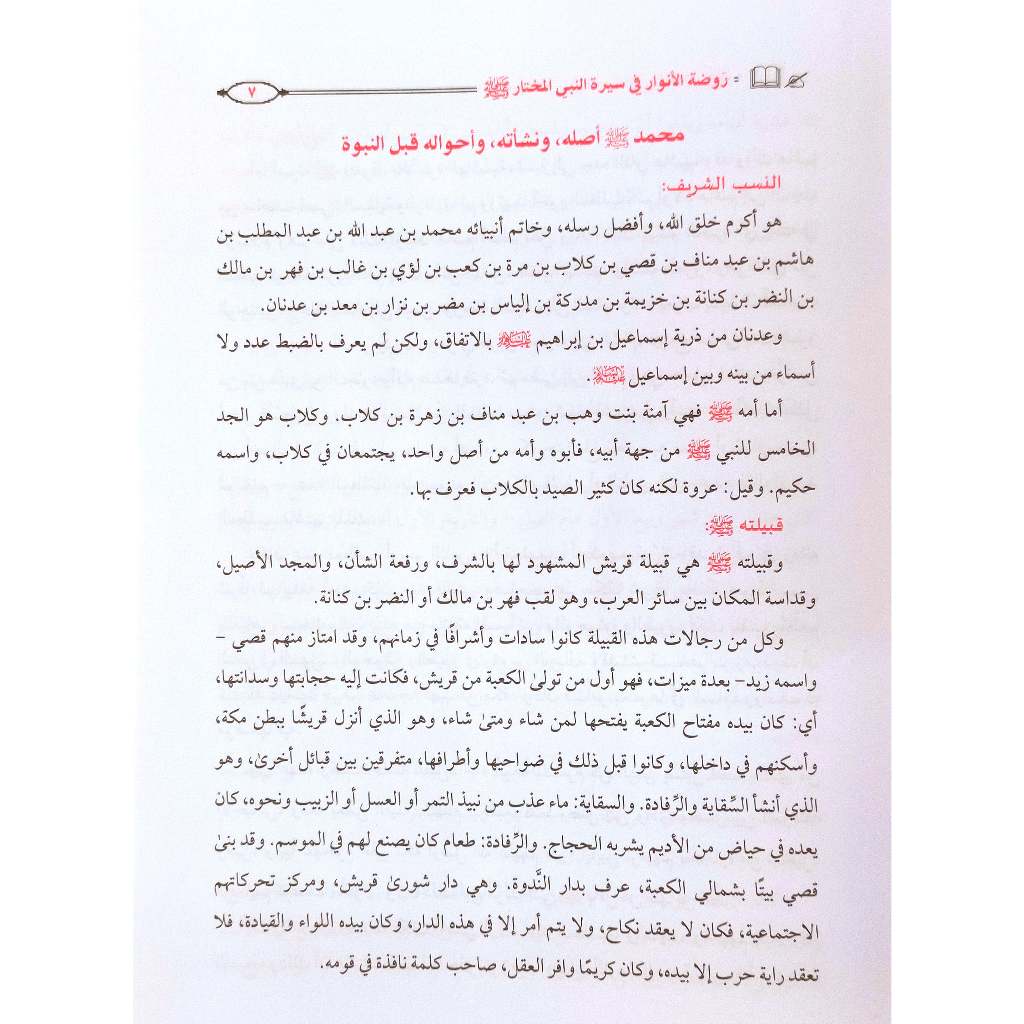 = رَوضة الأنوار في سيرة النبي المختار ﷺ ٧
محمد ﷺ أصله، ونشأته، وأحواله قبل النبوة
النسب الشريف:
هو أكرم خلق الله، وأفضل رسله، وخاتم أنبيائه محمد بن عبد الله بن عبد المطلب بن
هاشم بن عبد مناف بن قصي بن كلاب بن مرة بن كعب بن لؤي بن غالب بن فهر بن مالك
بن النضر بن كنانة بن خزيمة بن مدركة بن إلياس بن مضر بن نزار بن معد بن عدنان.
وعدنان من ذرية إسماعيل بن إبراهيم بالاتفاق، ولكن لم يعرف بالضبط عدد ولا
أسماء من بينه وبين إسماعيل .
أما أمه ﷺ فهي آمنة بنت وهب بن عبد مناف بن زهرة بن كلاب. وكلاب هو الجد
الخامس للنبي ﷺ من جهة أبيه، فأبوه وأمه من أصل واحد، يجتمعان في كلاب، واسمه
حكيم. وقيل: عروة لكنه كان كثير الصيد بالكلاب فعرف بها.
قبيلته ﷺ:
وقبيلته ﷺ هي قبيلة قريش المشهود لها بالشرف، ورفعة الشأن، والمجد الأصيل،
وقداسة المكان بين سائر العرب، وهو لقب فهر بن مالك أو النضر بن كنانة.
وكل من رجالات هذه القبيلة كانوا سادات وأشرافًا في زمانهم، وقد امتاز منهم قصي –
واسمه زيد– بعدة ميزات، فهو أول من تولىٰ الكعبة من قريش، فكانت إليه حجابتها وسدانتها،
أي: كان بيده مفتاح الكعبة يفتحها لمن شاء ومتىٰ شاء، وهو الذي أنزل قريشًا ببطن مكة،
وأسكنهم في داخلها، وكانوا قبل ذلك في ضواحيها وأطرافها، متفرقين بين قبائل أخرىٰ، وهو
الذي أنشأ السِّقاية والرِّفادة. والسقاية: ماء عذب من نبيذ التمر أو العسل أو الزبيب ونحوه، كان
يعده في حياض من الأديم يشربه الحجاج. والرِّفادة: طعام كان يصنع لهم في الموسم. وقد بنىٰ
قصي بيتًا بشمالي الكعبة، عرف بدار النَّدوة. وهي دار شورىٰ قريش، ومركز تحركاتهم
الاجتماعية، فكان لا يعقد نكاح، ولا يتم أمر إلا في هذه الدار، وكان بيده اللواء والقيادة، فلا
تعقد راية حرب إلا بيده، وكان كريمًا وافر العقل، صاحب كلمة نافذة في قومه.